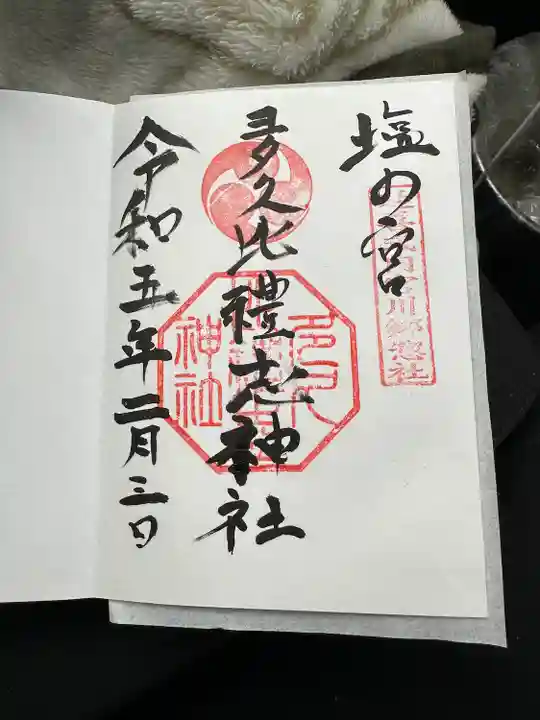 塩の宮
多久比禮志神社
令和五年二月三日
神社